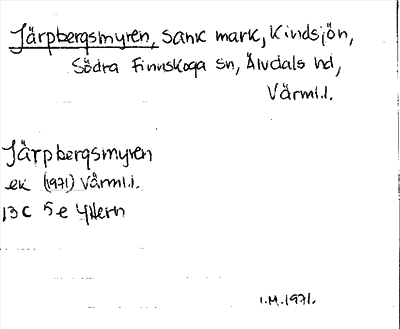 Järpbergsmyren, sank mark, Kindsjön,
Södra Finnskoga sn, Älvdals hd,
Värml.l.
Järpbergsmyren
ek (1971) Värml.l.
13 C 5 e Yttern
I.M.1971.